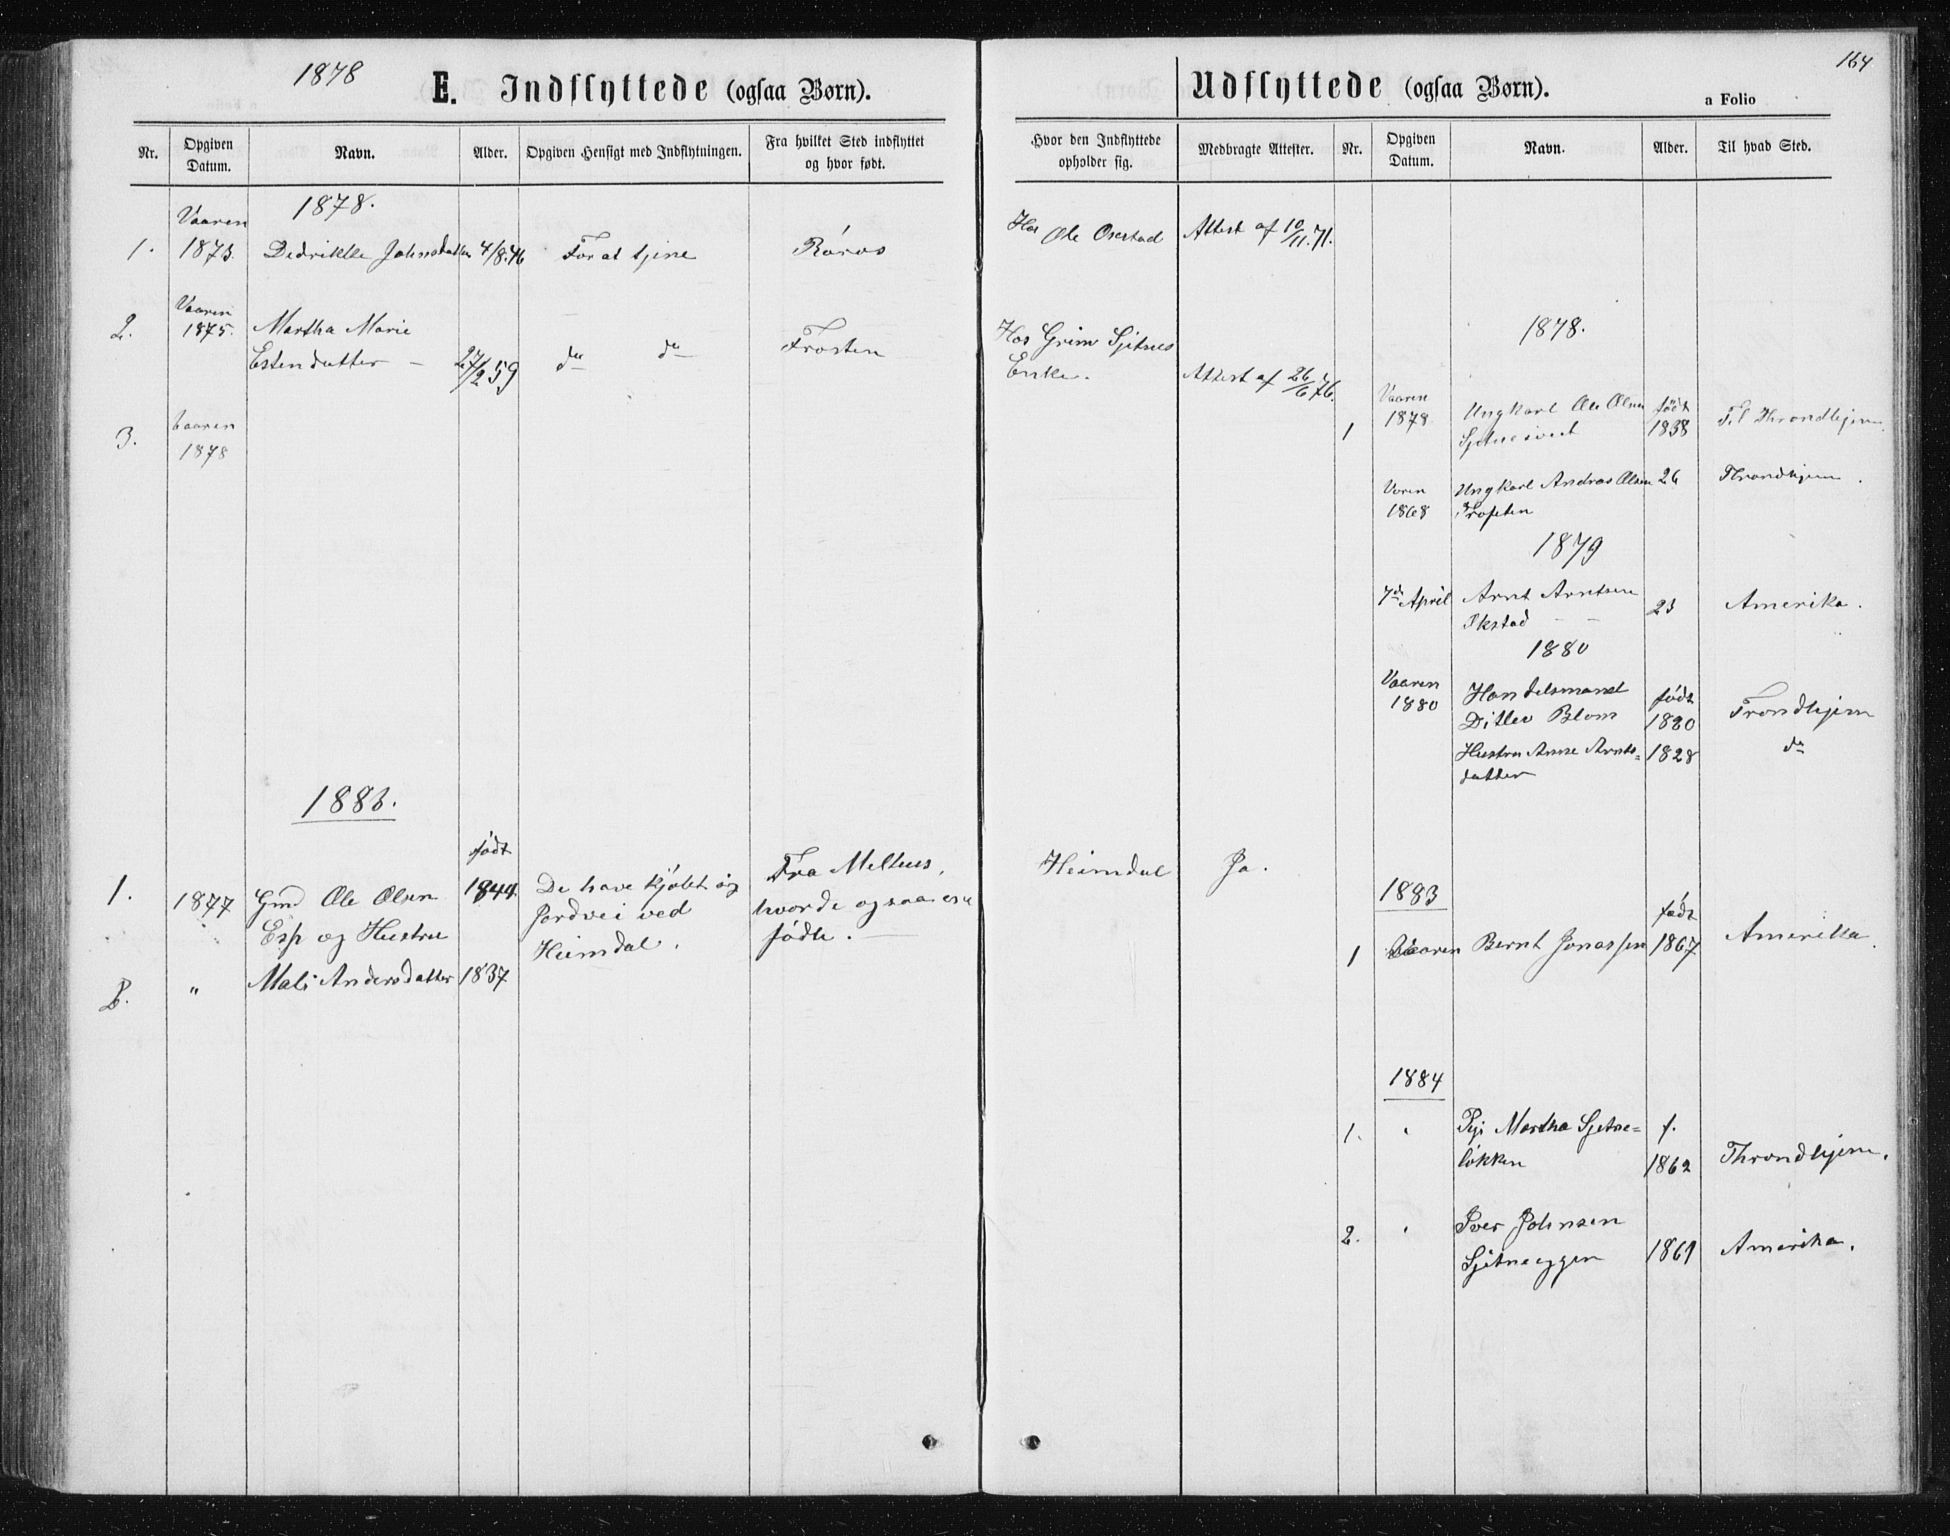 1878
E. Indflyttede (ogsaa Børn).
Nr.
Opgiven Datum.
Navn.
Alder.
Opgiven Hensigt med Indflytningen.
Fra hvilket Sted indflyttet og hvor født.
1878.
Vaaren
1. 1873. Dedrikke Johnsdatter 4/8.46 For at tjene Røros
Vaaren
2. 1875. Martha Marie
Estendatter – 27/2 59 do do Frosten
3. Vaaren
1878
1883.
født
1. 1877 Gmd Ole Olsen 1844 De have kjøbt og Fra Melhus,
Esp og Hustru Jordvei ved hvor de ogsaa ere
Heimdal. fødte.
2. " Mali Andersdatter 1837
164
Udflyttede (ogsaa Børn).
a Folio
Hvor den Indflyttede opholder sig.
Medbragte Attester.
Nr.
Opgiven Datum.
Navn.
Alder.
Til hvad Sted.
Hos
Ole Attest af 10/11.71.
Hos Grim Sjetnes
Enke. Attest af 26/6 76.
Heimdal Ja.
1878.
Vaaren
1 1878 Ungkarl Ole Olsen født Til Throndhjem.
1838
Voren Ungkarl Andras Olsen 26 Throndhjem.
1868
1879
7de April Arnt Arntsen
23 Amerika.
1880
Vaaren Handelsmand født
1880 Ditlev Blom 1820 Trondhjem
Hustru Anne Arnts= 1828 do
datter
1883
født
1 Vaaren Bernt Jonassen 1867 Amerika.
1884
1. " Pige Martha Sjetne= f.
løkken 1862 Throndhjem.
2. " Iver Johnsen
Sjetneeggen 1861 Amerika.